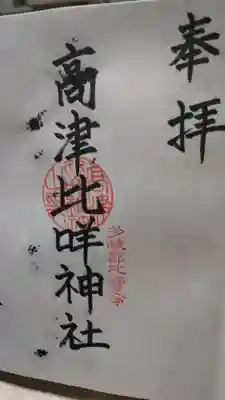 奉拝
高津比咩神社